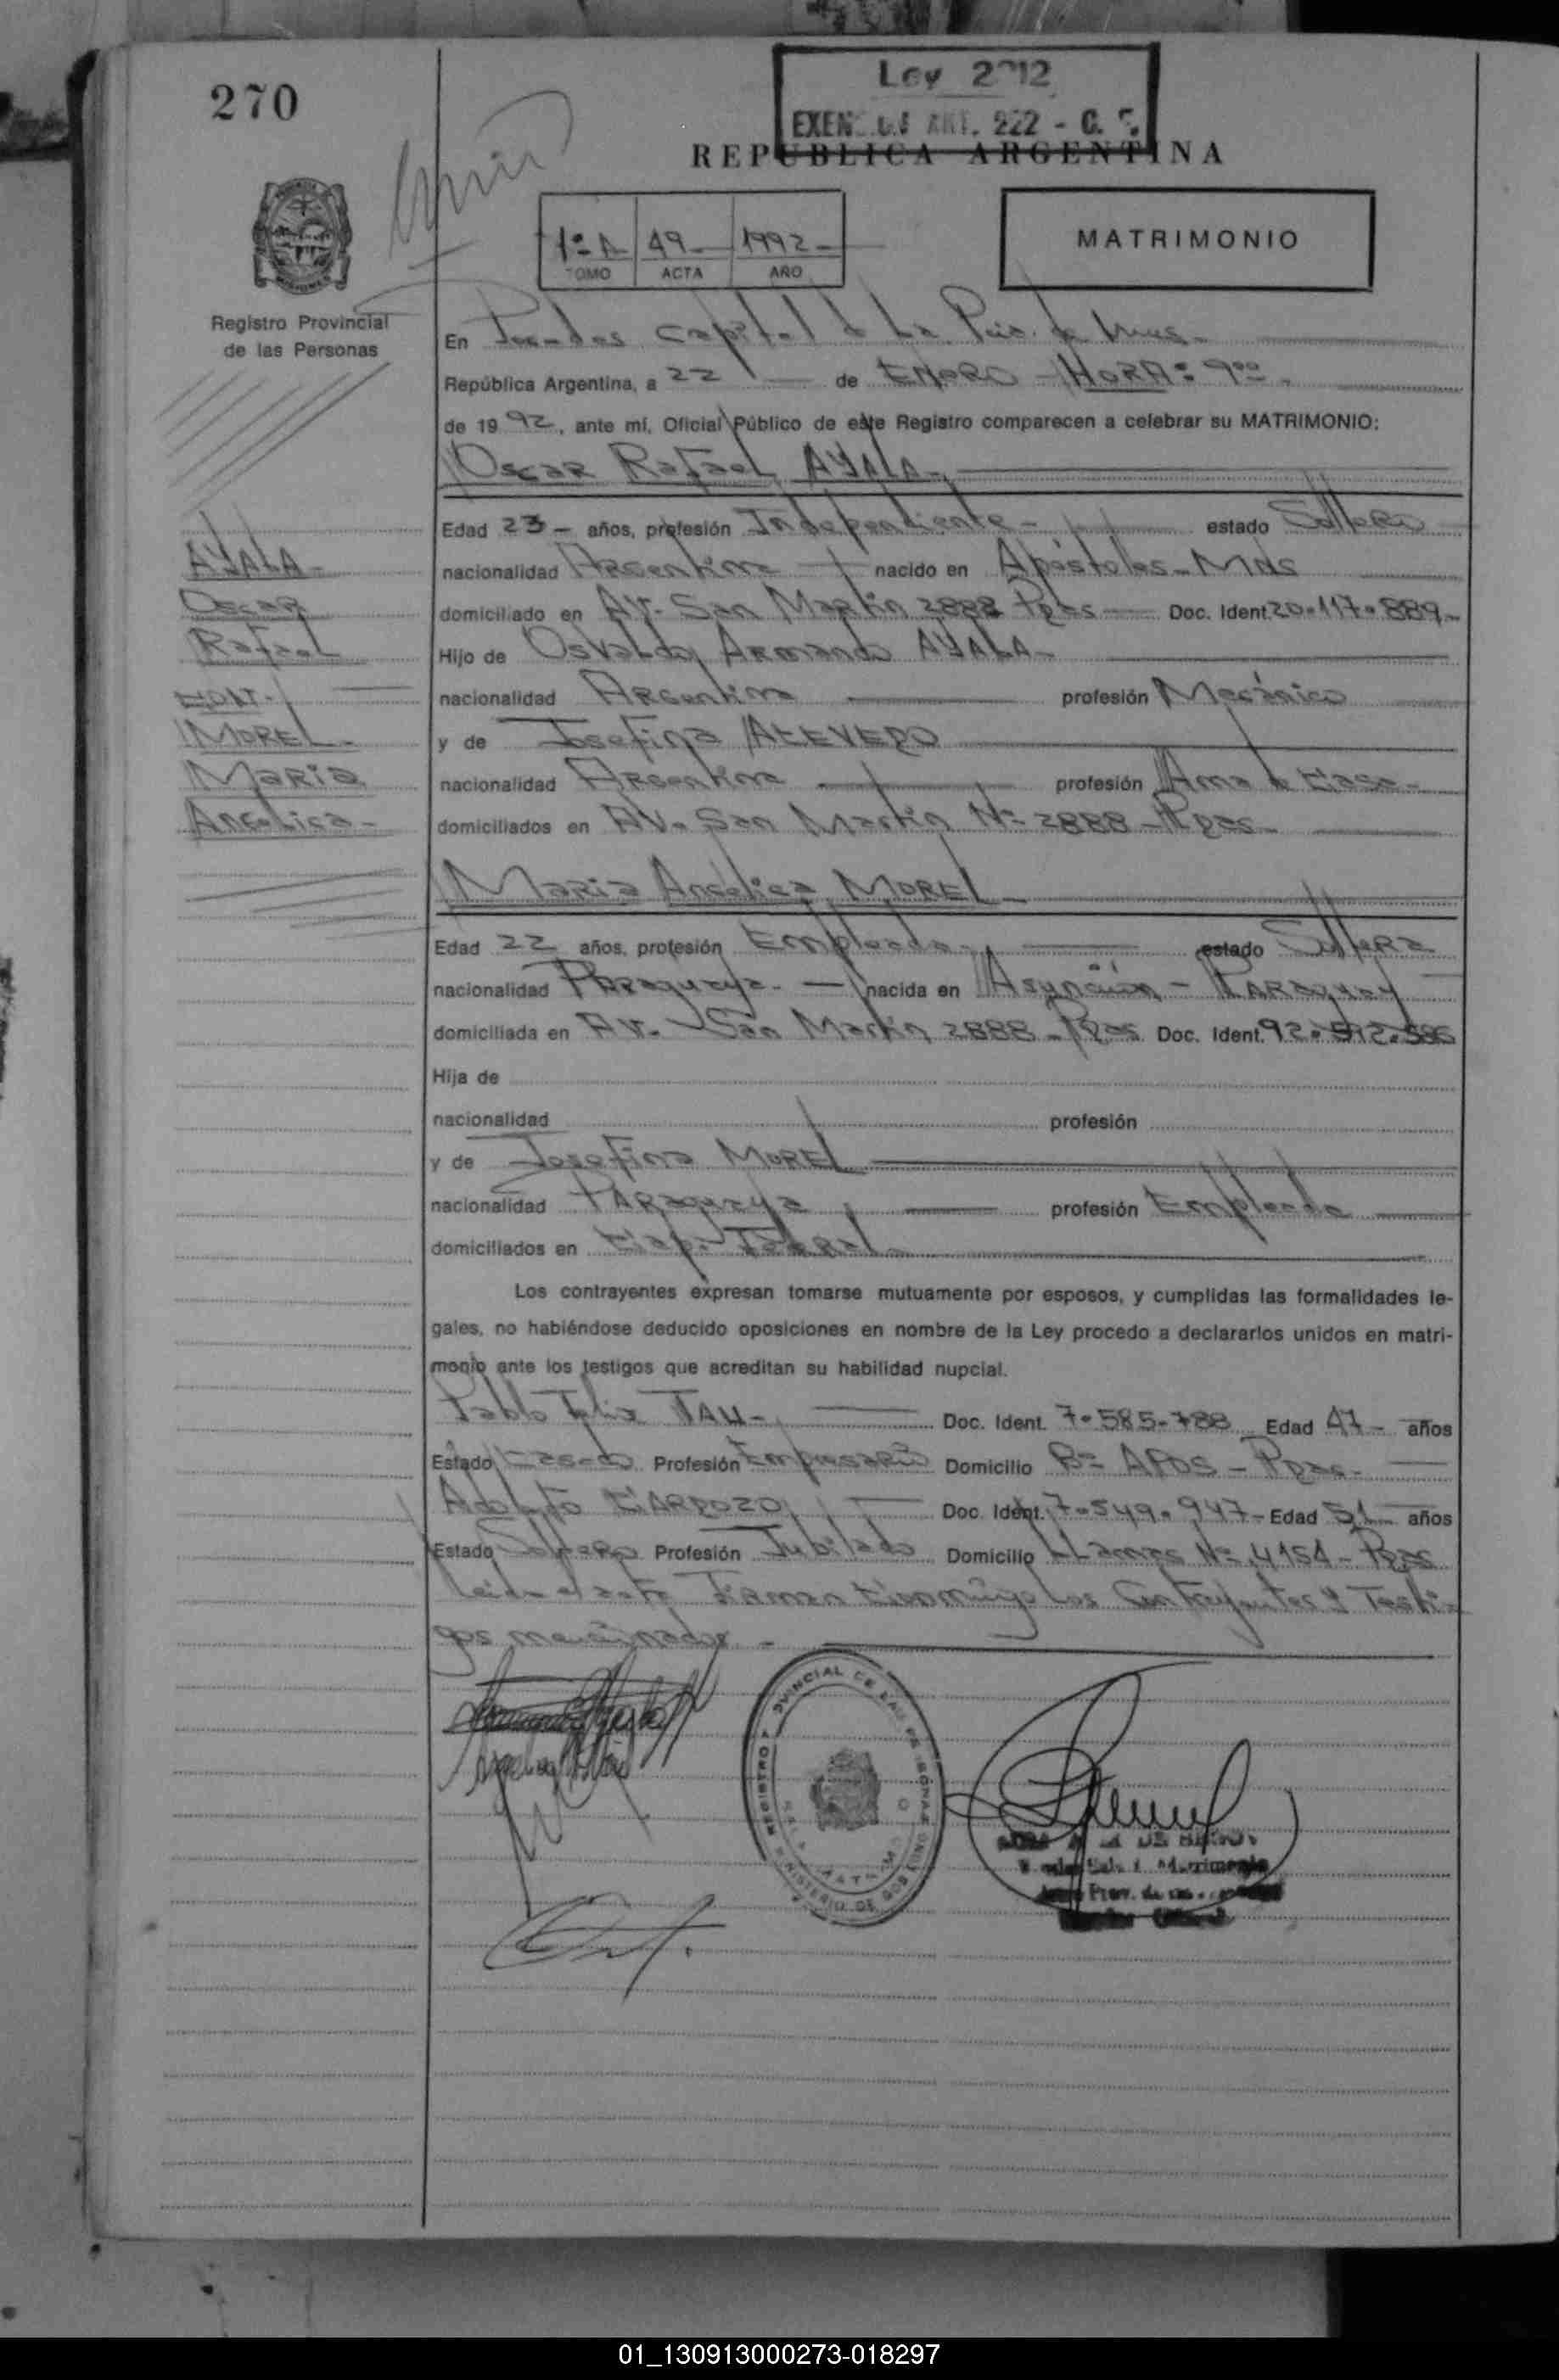 270
Ley 2912
EXENCION ART. 222 - C. F.
REPUBLICA ARGENTINA
1º A 49 1992
TOMO ACTA AÑO
MATRIMONIO
Registro Provincial
de las Personas
En Posadas Capital de La Pcia. de Mnes.
República Argentina, a 22 de ENERO - HORA: 9⁰⁰.
de 1992, ante mí, Oficial Público de este Registro comparecen a celebrar su MATRIMONIO:
Oscar Rafael AYALA-
Edad 23 - años, profesión Independiente - estado Soltero
nacionalidad Argentina nacido en Apóstoles - Mns
domiciliado en Av. San Martín 2888 Pdas Doc. Ident. 20.117.889-
Hijo de Osvaldo Armando AYALA-
nacionalidad Argentina profesión Mecánico
y de Josefina ACEVEDO
nacionalidad Argentina profesión Ama de Casa-
domiciliados en AV. San Martín Nº 2888 - Pdas-
AYALA-
Oscar
Rafael
CON.
MOREL-
Maria
Angelica-
Maria Angelica MOREL-
Edad 22 años, profesión Empleada- estado Soltera
nacionalidad Paraguaya. nacida en Asunción - PARAguay
domiciliada en Av. San Martín 2888 - Pdas Doc. Ident. 92.
Hija de
nacionalidad profesión
y de Josefina MOREL
nacionalidad PARaguaya profesión Empleada
domiciliados en Cap. Federal-
Los contrayentes expresan tomarse mutuamente por esposos, y cumplidas las formalidades le-
gales, no habiéndose deducido oposiciones en nombre de la Ley procedo a declararlos unidos en matri-
monio ante los testigos que acreditan su habilidad nupcial.
Pablo TAU- Doc. Ident. 7.585.788 Edad 47- años
Estado Casado Profesión Empresario Domicilio Bº APOS - Pdas-
Adolfo CARDOZO Doc. Ident. 7.549.947- Edad 51 años
Estado Soltero Profesión Jubilado Domicilio LLamas Nº 4154 - Pdas
Leida el acta Firman Conmigo los Contrayentes y Testi-
gos mencionados -
REGISTRO PROVINCIAL DE LAS PERSONAS
MINISTERIO DE GOBIERNO
01_130913000273-018297